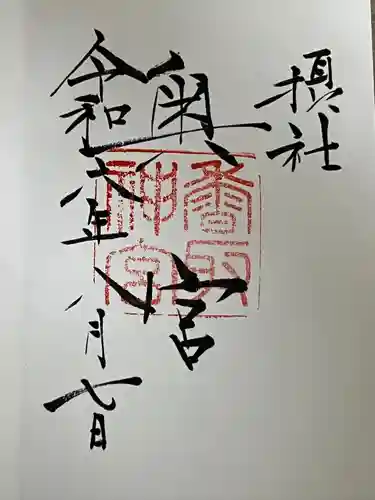 摂社
奥宮
香取神宮
令和六年八月七日